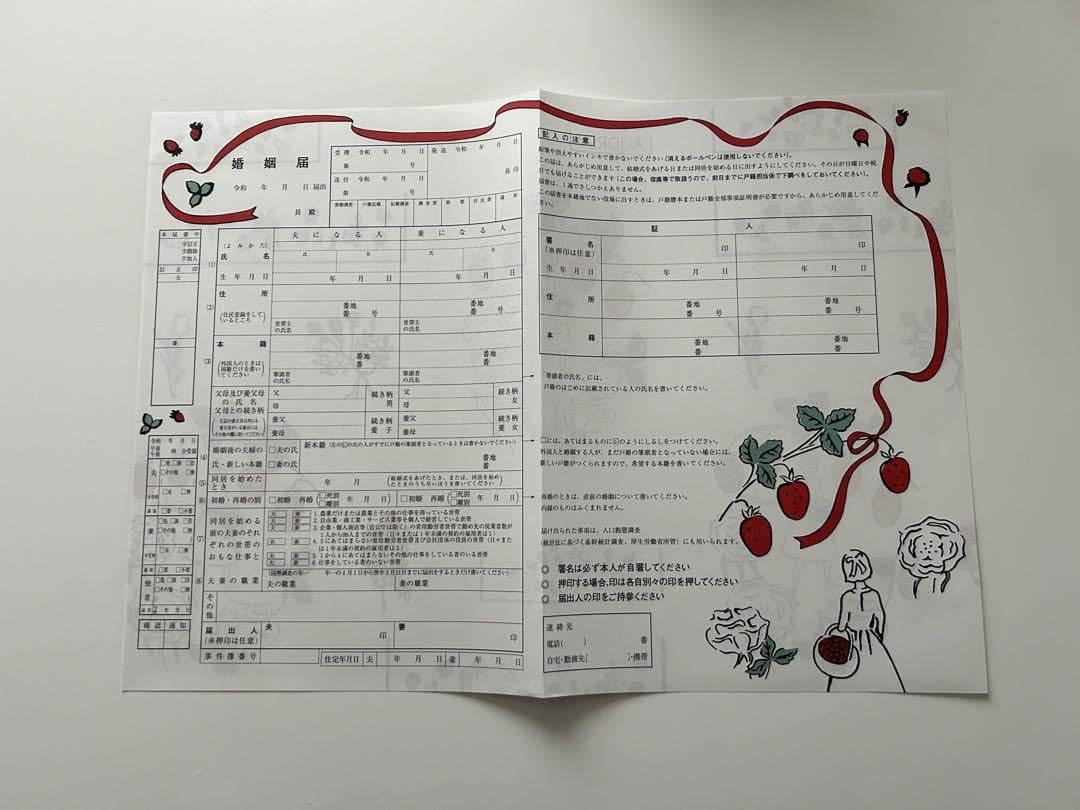 婚姻届
令和　年　月　日 届出
長 殿
受理 令和　年　月　日
第　　　号
送付 令和　年　月　日
第　　　号
発送 令和　年　月　日
長印
書類調査　戸籍記載　記載調査　調査票　附票　住民票　通知
本届書中
字訂正
字削除
字加入
訂正印
夫
妻
夫になる人　妻になる人
(1)
(よみかた)
氏名
氏　名　氏　名
生年月日
年　月　日　年　月　日
(2)
住所
(住民登録をしているところ)
番地　番地
番　号　番　号
世帯主の氏名　世帯主の氏名
(3)
本籍
(外国人のときは国籍だけを書いてください)
番地　番地
番　番
筆頭者の氏名　筆頭者の氏名
父母及び養父母の氏名
父母との続き柄
父　続き柄　父　続き柄
母　男　母　女
養父　続き柄　養父　続き柄
養母　養子　養母　養女
(4)
婚姻後の夫婦の氏・新しい本籍
□夫の氏
□妻の氏
新本籍(左の☑の氏の人がすでに戸籍の筆頭者となっているときは書かないでください)
番地
番
(5)
同居を始めたとき
年　月
(結婚式をあげたとき、または、同居を始めたときのうち早いほうを書いてください)
(6)
初婚・再婚の別
□初婚　再婚(□死別 □離別　年　月　日)　□初婚　再婚(□死別 □離別　年　月　日)
(7)
同居を始める前の夫妻のそれぞれの世帯のおもな仕事と
夫　妻　1. 農業だけまたは農業とその他の仕事を持っている世帯
夫　妻　2. 自由業・商工業・サービス業等を個人で経営している世帯
夫　妻　3. 企業・個人商店等(官公庁は除く)の常用勤労者世帯で勤め先の従業者数が1人から99人までの世帯(日々または1年未満の契約の雇用者は5)
夫　妻　4. 3にあてはまらない常用勤労者世帯及び会社団体の役員の世帯(日々または1年未満の契約の雇用者は5)
夫　妻　5. 1から4にあてはまらないその他の仕事をしている者のいる世帯
夫　妻　6. 仕事をしている者のいない世帯
(8)
夫妻の職業
(国勢調査の年…　年…の4月1日から翌年3月31日までに届出をするときだけ書いてください)
夫の職業　妻の職業
その他
届出人
(※押印は任意)
夫　印　妻　印
事件簿番号
住定年月日　夫　年　月　日　妻　年　月　日
令和　年　月　日
午前 午後　時　分受領
夫
□免 □旅 □住
□その他
□有　□無
不受理
通知 □要 □不要
妻
□免 □旅 □住
□その他
□有　□無
不受理
通知 □要 □不要
使者
□免 □旅 □住
□その他
年　月　日
確認　通知
記入の注意
鉛筆や消えやすいインキで書かないでください(消えるボールペンは使用しないでください)。
この届は、あらかじめ用意して、結婚式をあげる日または同居を始める日に出すようにしてください。その日が日曜日や祝日でも届けることができます(この場合、宿直等で取扱うので、前日までに戸籍担当係で下調べをしておいてください)。
届書は、1通でさしつかえありません。
この届書を本籍地でない役場に出すときは、戸籍謄本または戸籍全部事項証明書が必要ですから、あらかじめ用意してください。
証人
署名
(※押印は任意)
印　印
生年月日
年　月　日　年　月　日
住所
番地　番地
番　号　番　号
本籍
番地　番地
番　番
「筆頭者の氏名」には、
戸籍のはじめに記載されている人の氏名を書いてください。
□には、あてはまるものに☑のようにしるしをつけてください。
外国人と婚姻する人が、まだ戸籍の筆頭者となっていない場合には、
新しい戸籍がつくられますので、希望する本籍を書いてください。
再婚のときは、直前の婚姻について書いてください。
内縁のものはふくまれません。
届け出られた事項は、人口動態調査
(統計法に基づく基幹統計調査、厚生労働省所管)にも用いられます。
◎ 署名は必ず本人が自署してください
◎ 押印する場合、印は各自別々の印を押してください
◎ 届出人の印をご持参ください
連絡先
電話(　　)　　番
自宅・勤務先[　　]・携帯